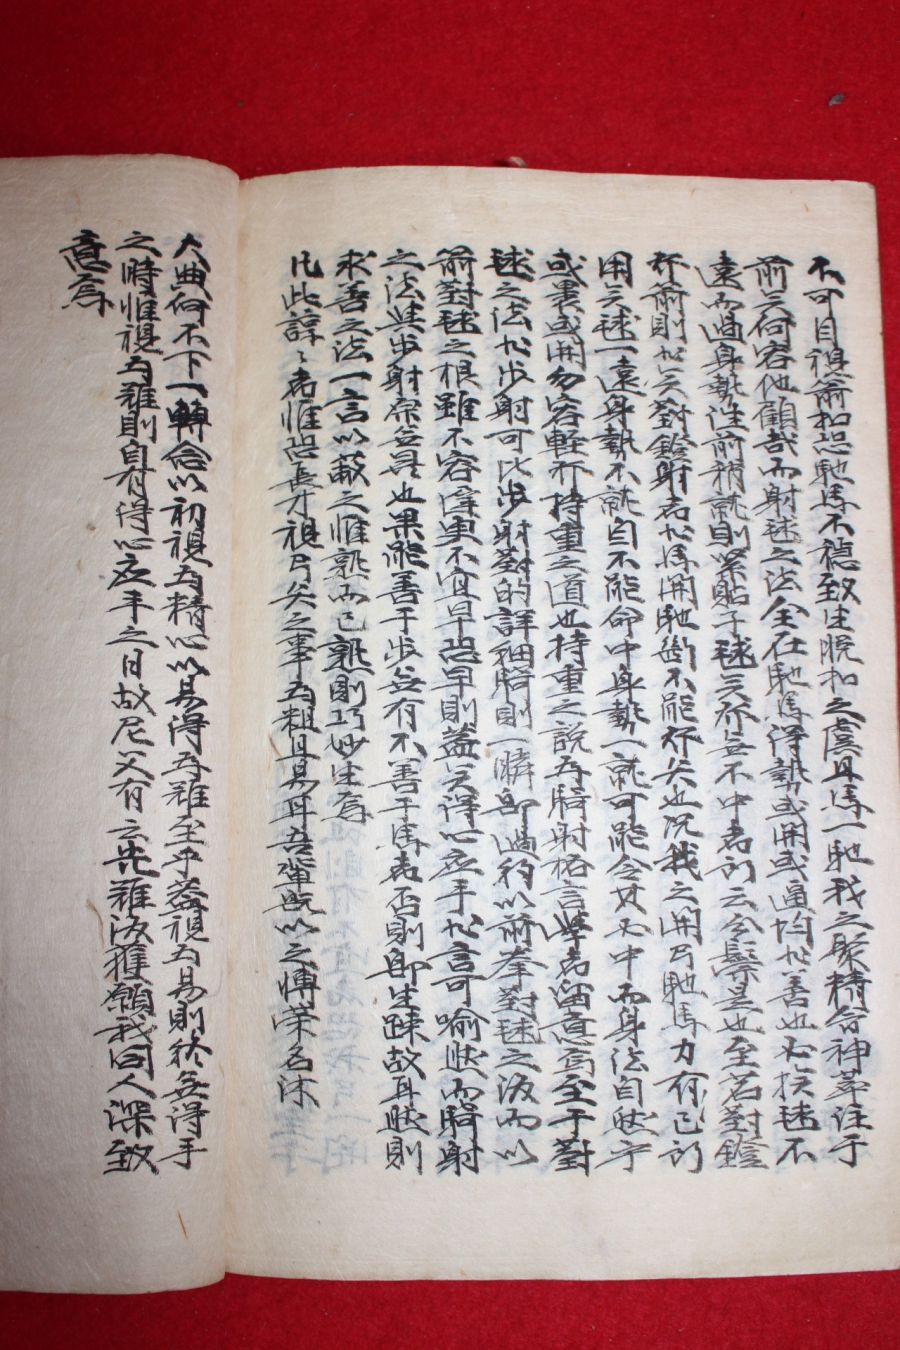 不可目視前扣恐馳馬不穩致生脫扣之虞且馬一馳我之聚精會神萃注于
前矣何容他顧哉而射毬之法全在馳馬得勢或開或通均非善也如挨毬不
遠而過身勢往前稍就則緊貼于毬矣發無不中者所云分鬃是也至若對鐙
發前則非矣對鐙射者非馬開馳断不能發矢也況我之開弓馳馬力有已所
用矣毬一遠身勢不就自不能命中身勢一就可能令其不中而身法自然乎
或裏或開勿容輕發持重之道也持重之說吾騎射格言學者留意焉至于對
毬之法非步射可比步射對的詳細騎則一瞬即過約以前拳對毬之後而以
前對毬之根雖不容遲更不宜早恐早則蓋矣得心應手非言可喻然而騎射
之法與步射原無異也果能善于步無有不善于馬者否則即生疎故耳然則
求善之法一言以蔽之惟熟而已熟則巧妙生焉
凡此諄〻者惟恐長才視弓矢之事為粗且易耳吾輩既以之博榮名沐
大典何不下一轉念以初視為精心以易得為難至乎蓋視為易則終無得手
之時惟視為難則自有得心應手之日故尼父有云先難後獲願我同人深致
意焉